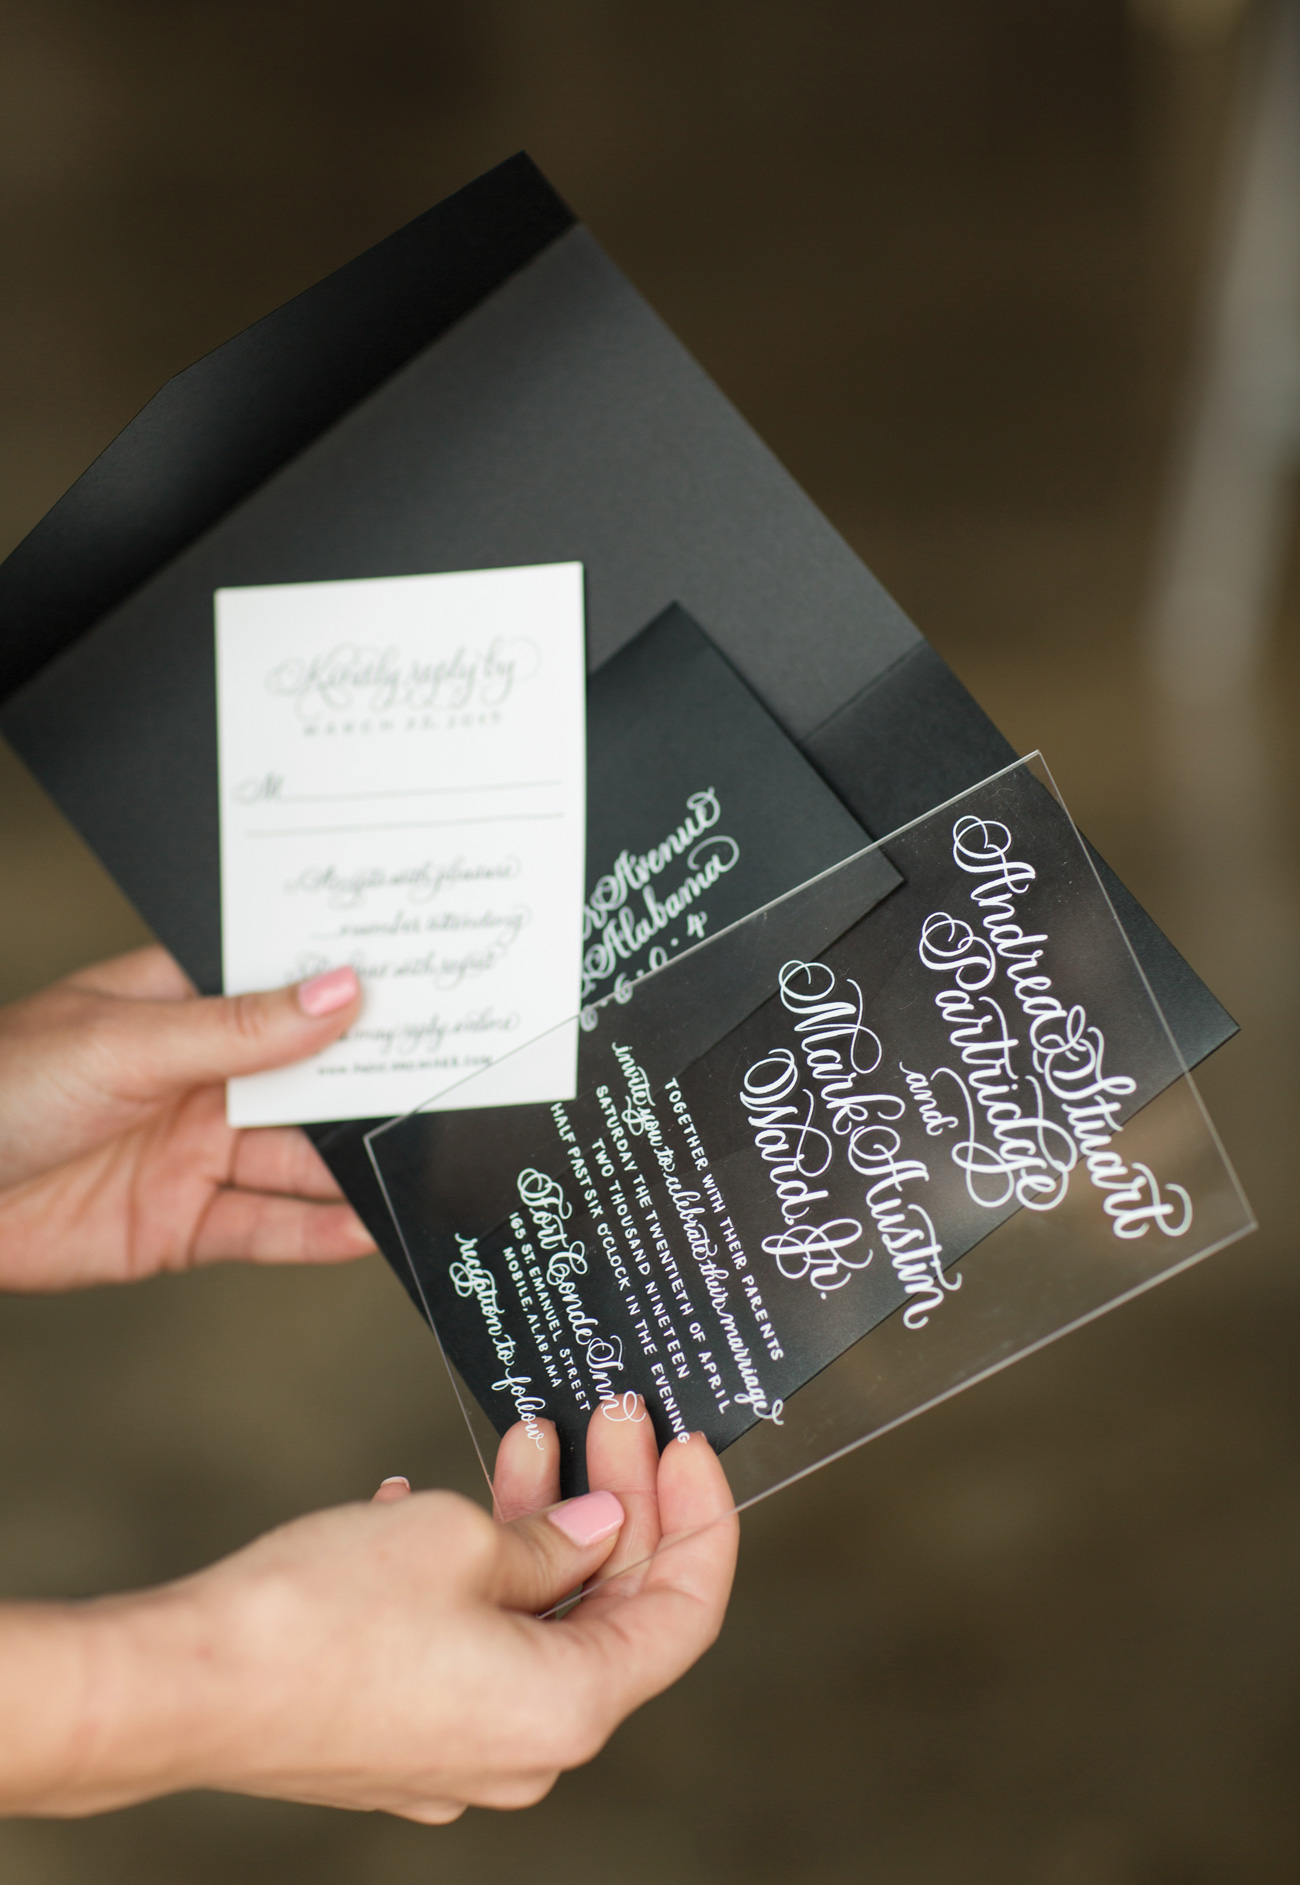 Andrea Stuart
Partridge
and
Mark Austin
Ward, Jr.
TOGETHER WITH THEIR PARENTS
invite you to celebrate their marriage
SATURDAY THE TWENTIETH OF APRIL
TWO THOUSAND NINETEEN
HALF PAST SIX O'CLOCK IN THE EVENING
Fort Conde Inn
165 ST. EMANUEL STREET
MOBILE, ALABAMA
reception to follow
Kindly reply by
MARCH
M
number attending
with regret
may reply online
Avenue
Alabama